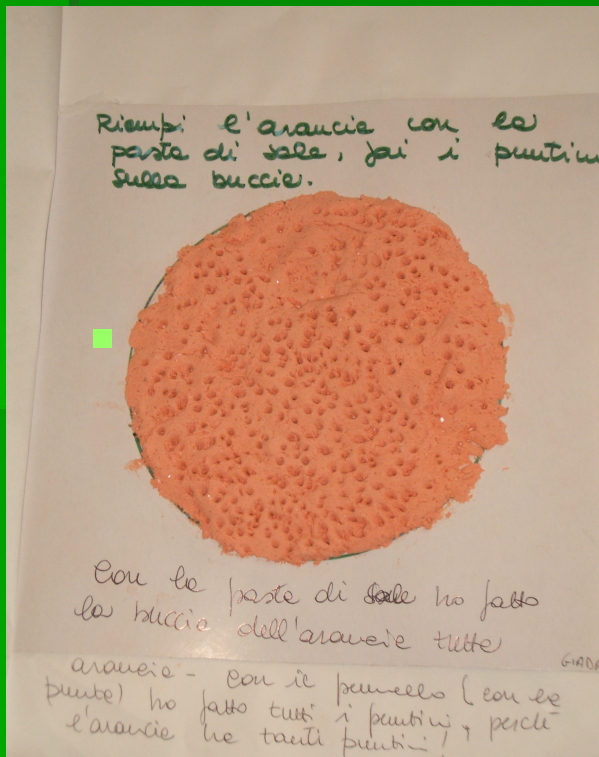 Riempi l'arancia con la
pasta di sale, fai i puntini
sulla buccia.
Con la pasta di sale ho fatto
la buccia dell'arancia tutta
GIADA
arancia - con il pennello (con la
punta) ho fatto tutti i puntini, perchè
l'arancia ha tanti puntini!